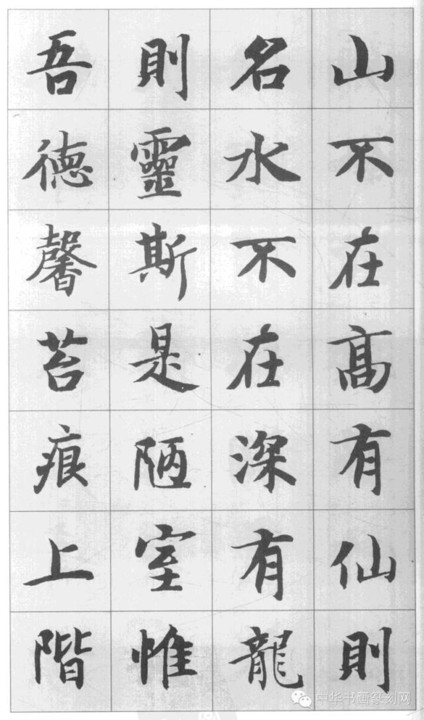 山不在高有仙則
名水不在深有龍
則靈斯是陋室惟
吾德馨苔痕上階
中华书画篆刻网